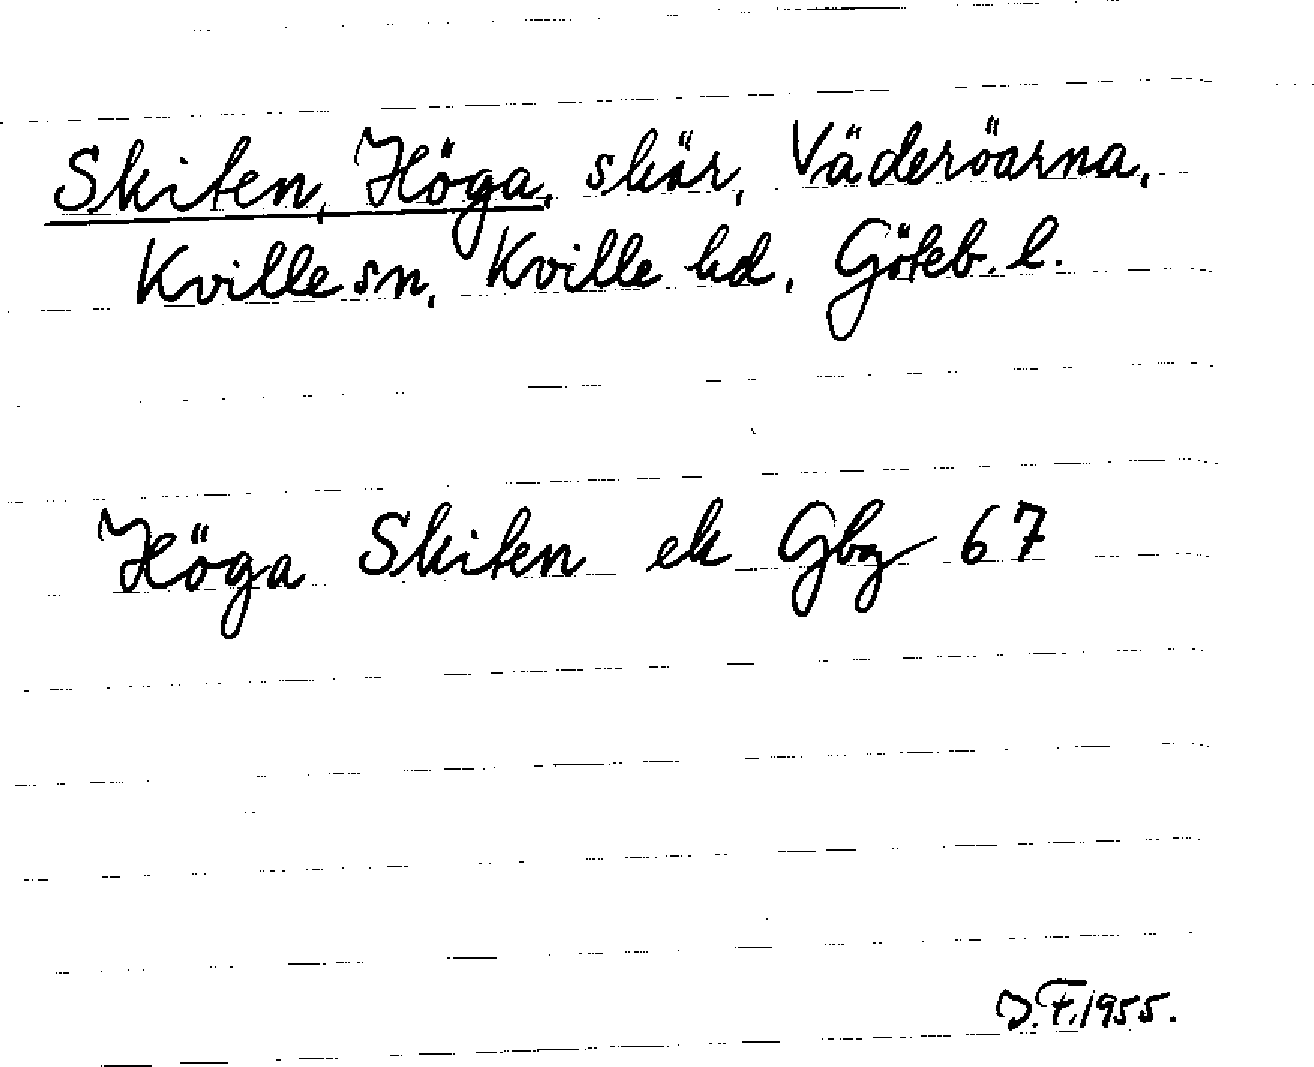 Skiten, Höga, skär, Väderöarna,
Kville sn, Kville hd, Göteb. l.
Höga Skiten ek Gbg 67
D.F. 1955.